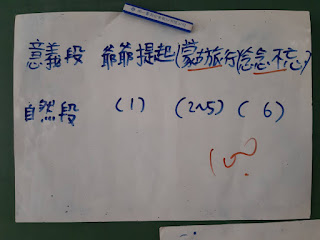 意義段 爺爺提起(蒙古旅行)(念念不忘)
自然段 (1) (2~5) (6)
100